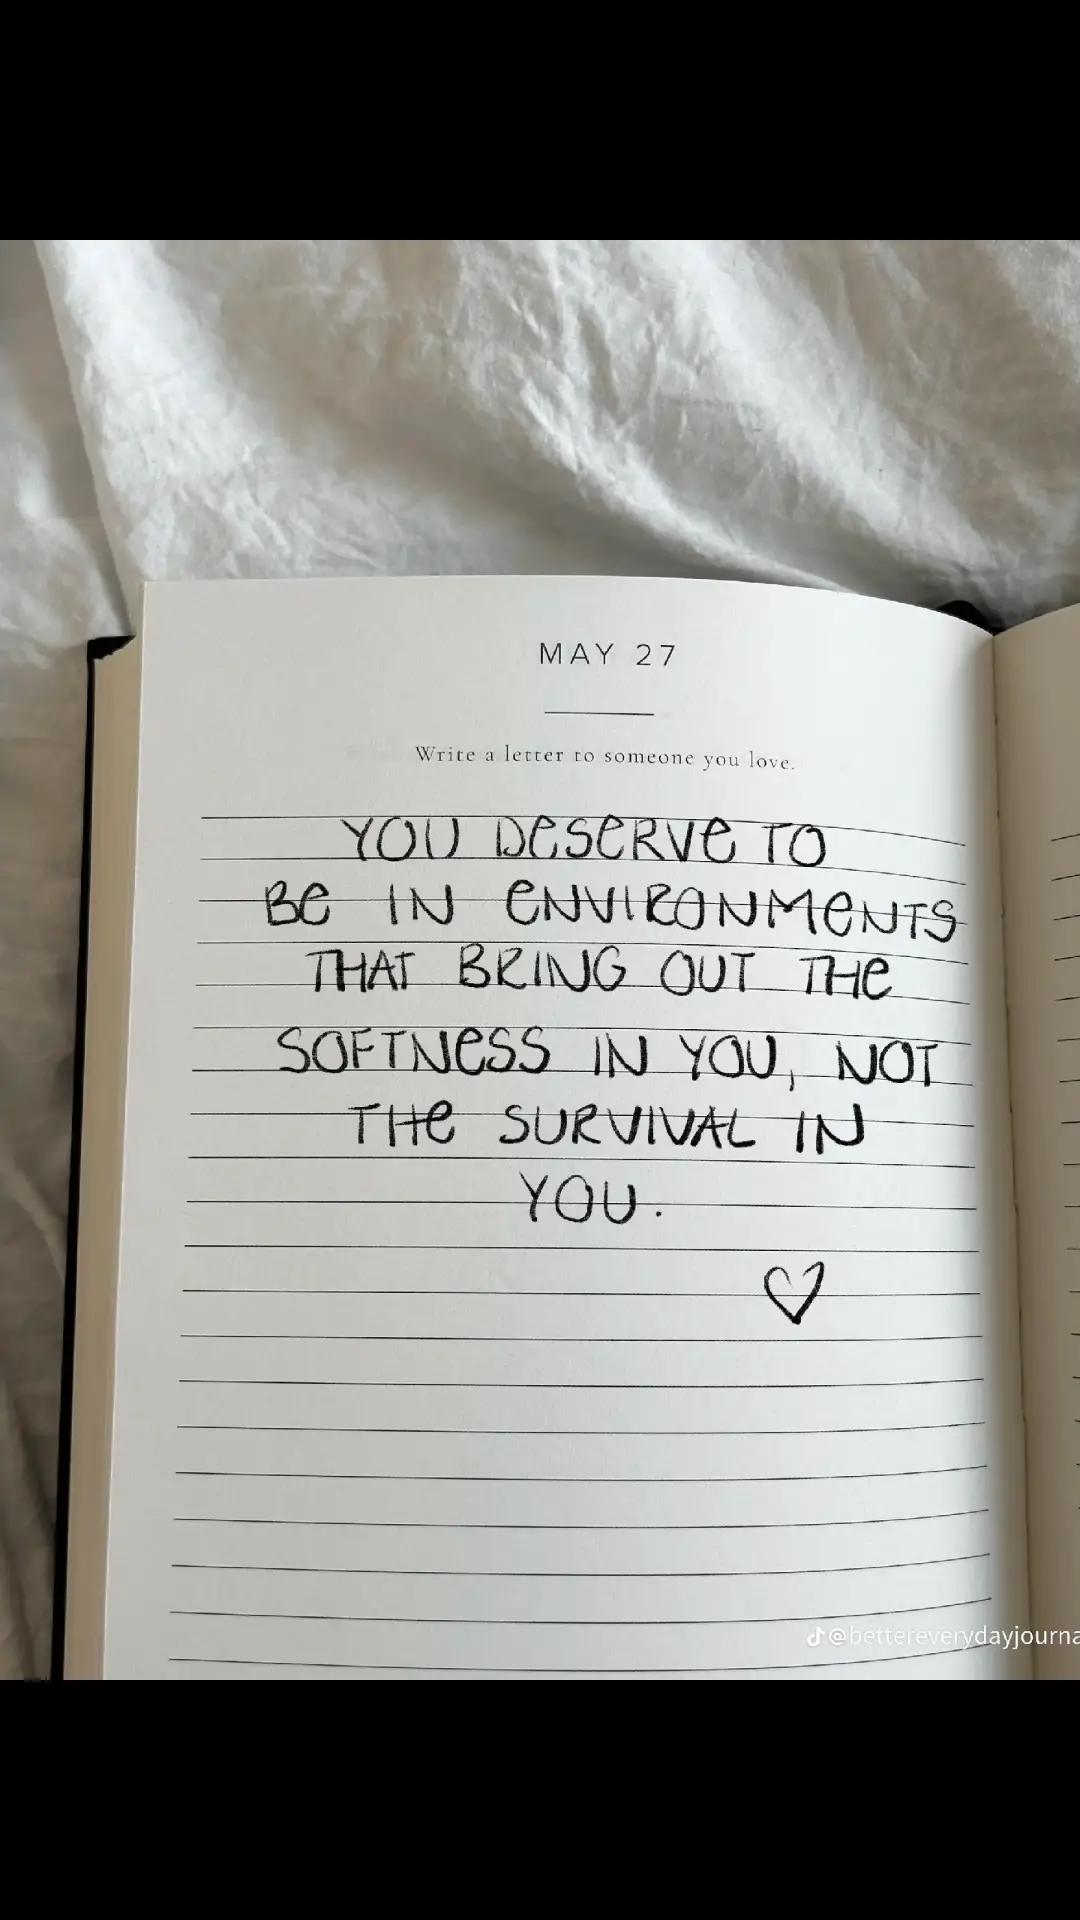 MAY 27
Write a letter to someone you love.
YOU DESERVE TO
BE IN ENVIRONMENTS
THAT BRING OUT THE
SOFTNESS IN YOU, NOT
THE SURVIVAL IN
YOU.
@bettereverydayjourna